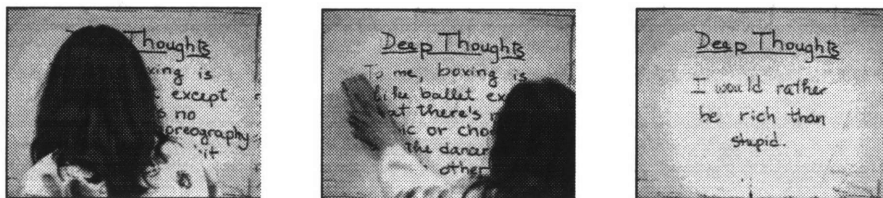 Thoughts
xing is
except
s no
oreography
Deep Thoughts
To me, boxing is
like ballet ex
at there's
ic or cho
the dancer
other
Deep Thoughts
I would rather
be rich than
stupid.